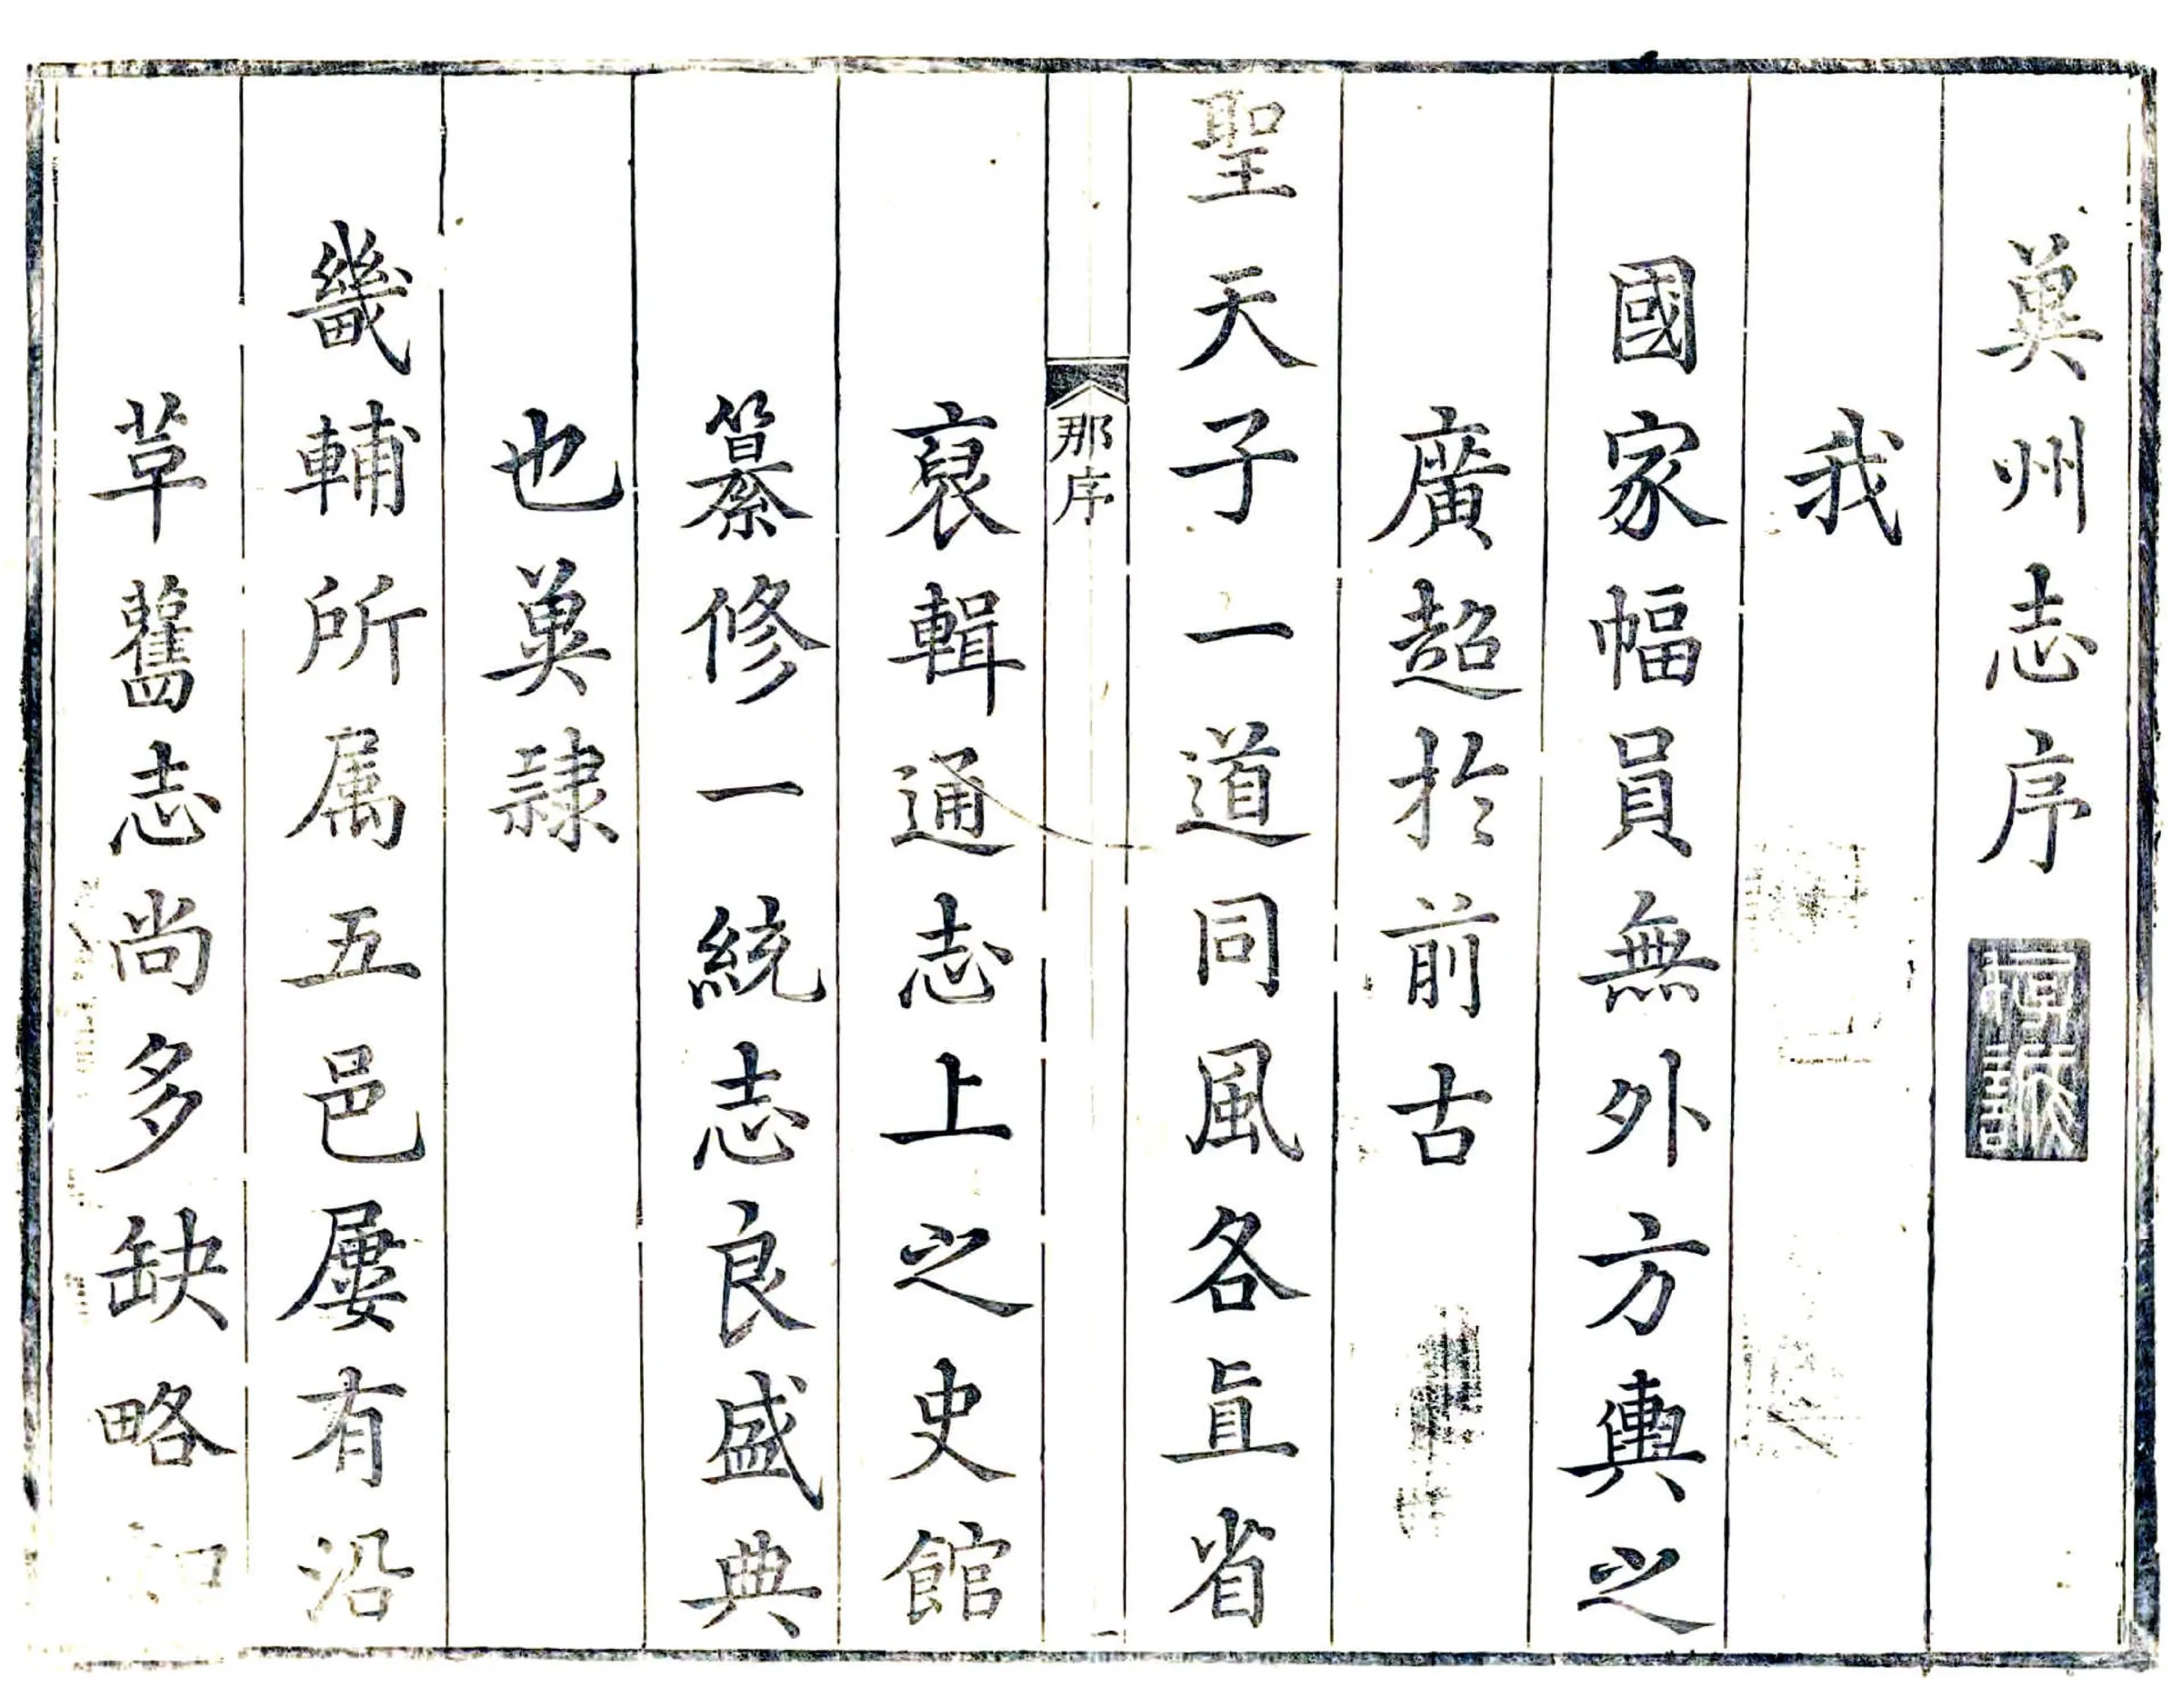 兾州志序
我
國家幅員無外方輿之
廣超於前古
聖天子一道同風各直省
那序
一
裒輯通志上之史館
纂修一統志良盛典
也兾隸
畿輔所属五邑屢有沿
草舊志尚多缺略